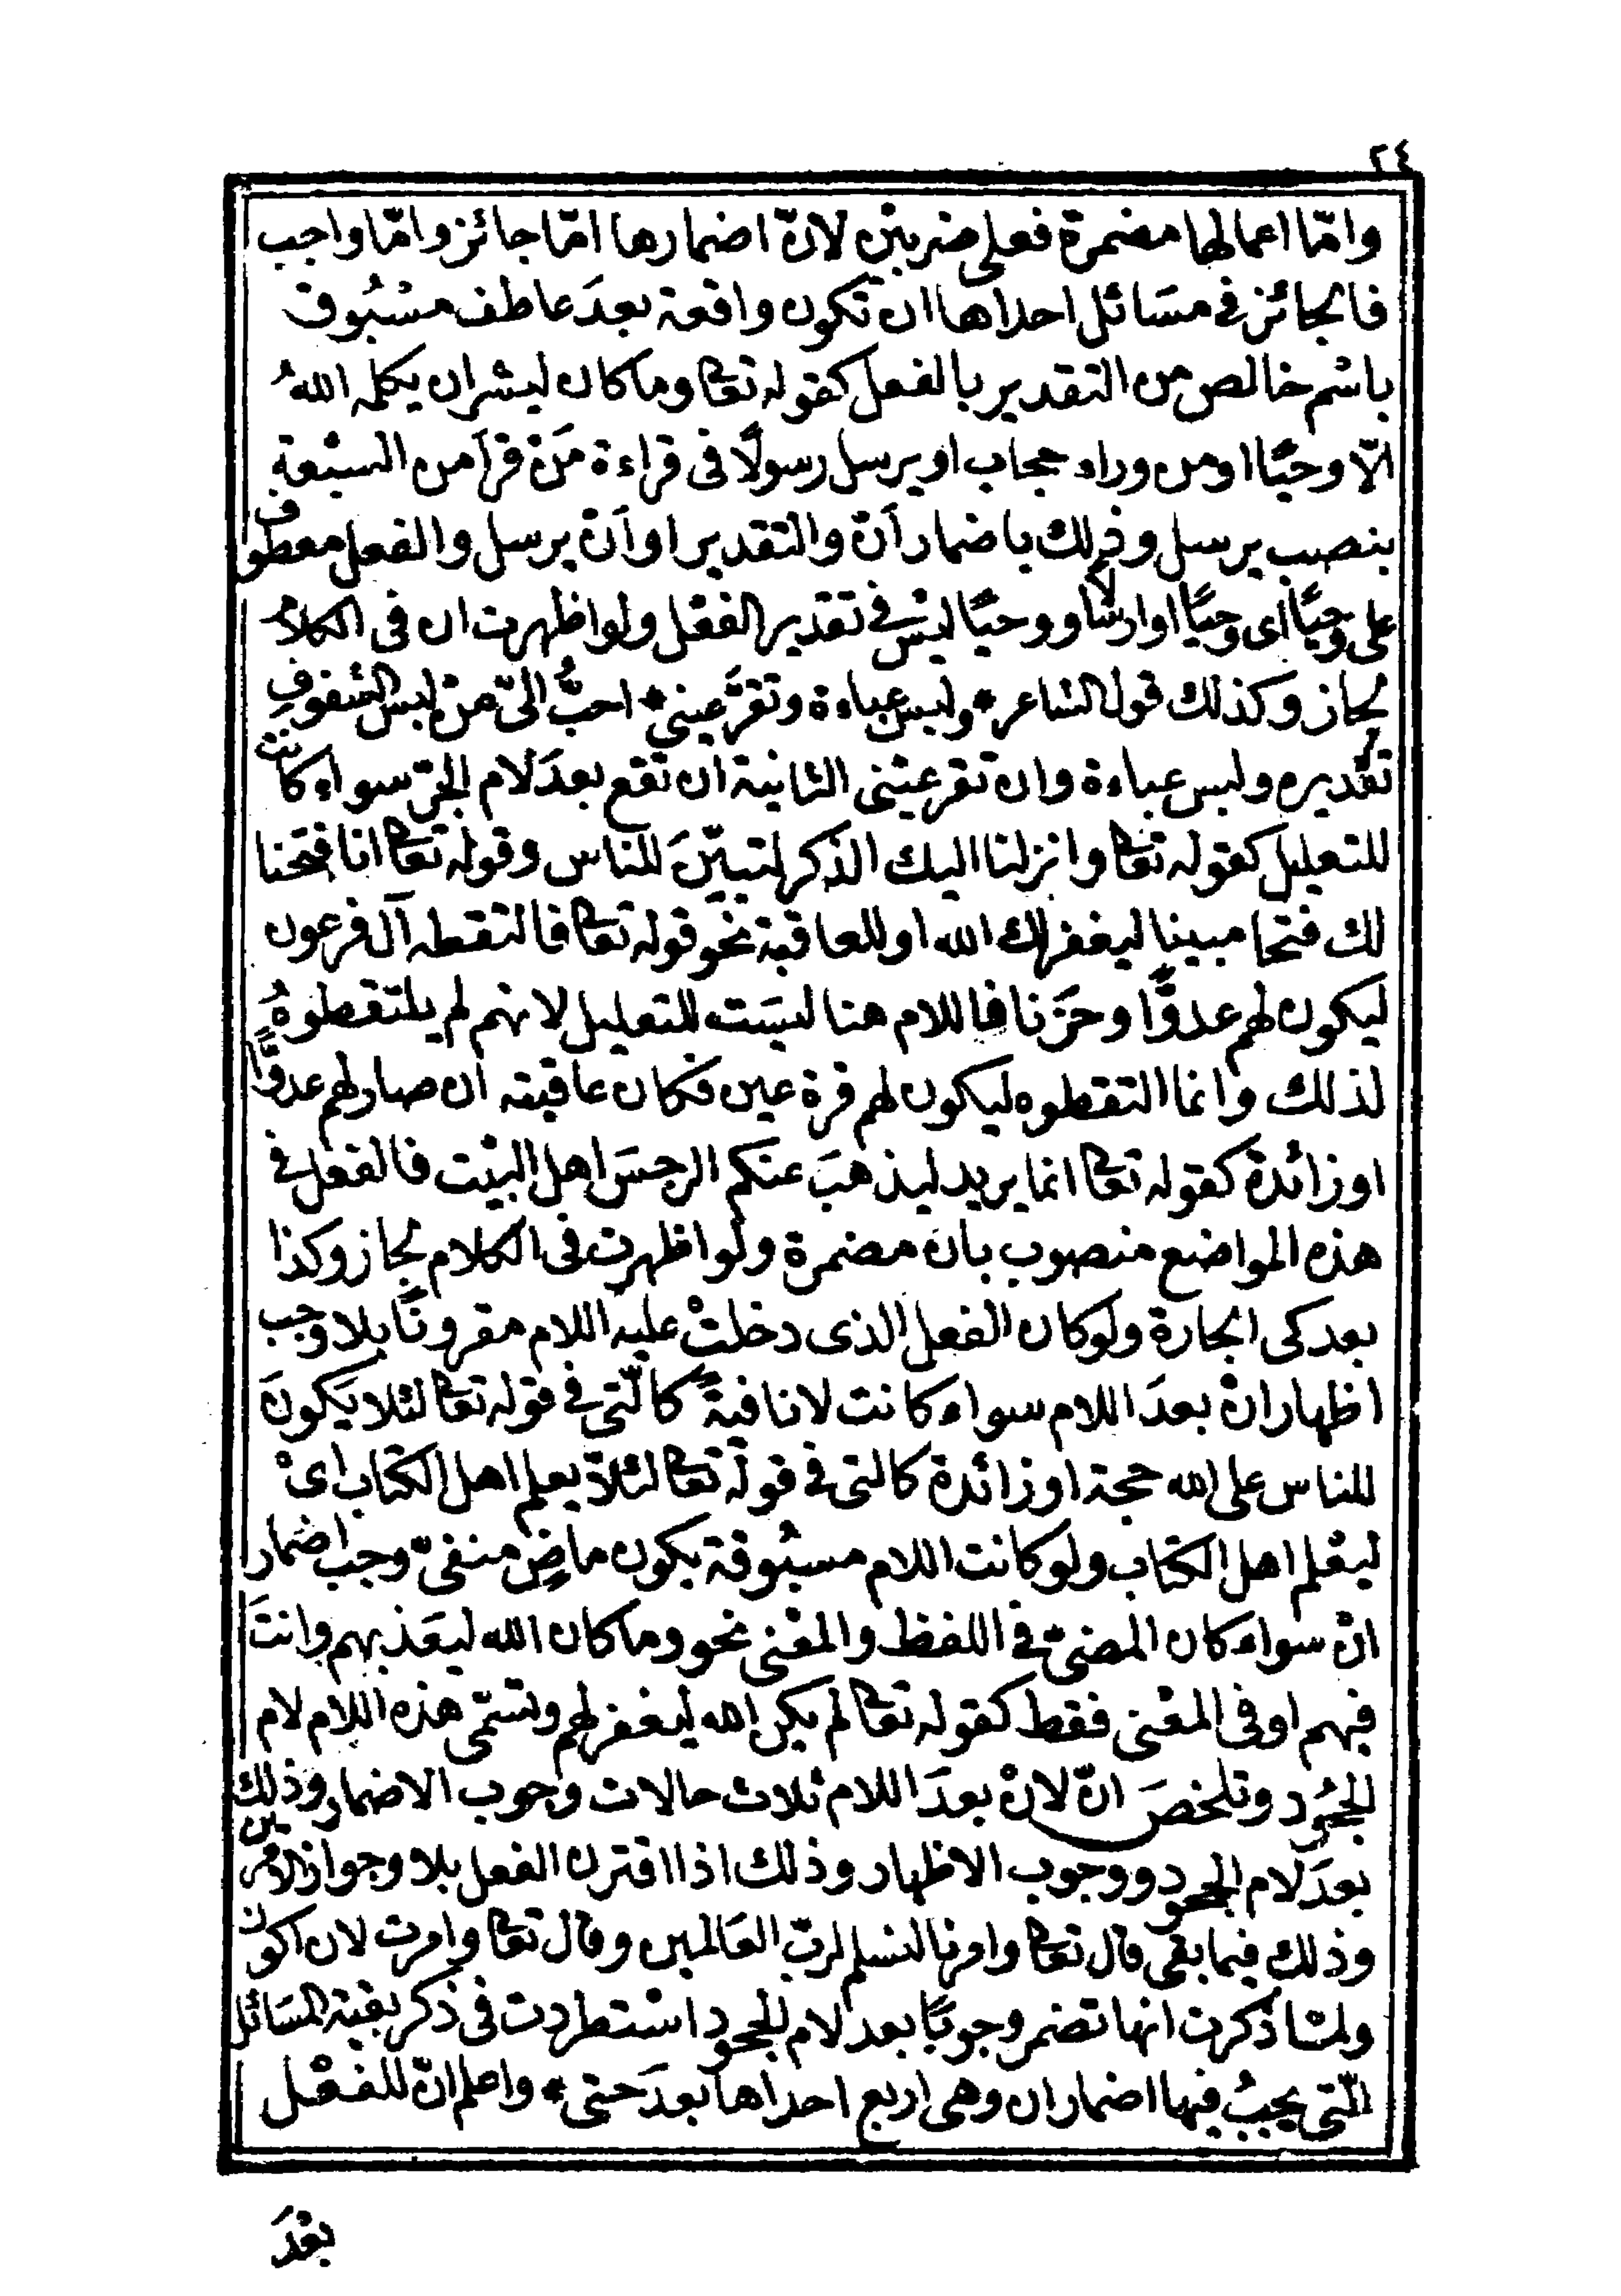 ٢٤
وامّا اعمالها مضمرة فعلى ضربين لانّ اضمارها امّا جائز وامّا واجب
فالجائز فى مسَائل احداها ان تكون واقعة بعدَ عاطف مسْبُوق
باسْم خالص من التقدير بالفعل كقوله تعالى وما كان لبشران يكلمه اللهُ
الّا وحيًا او من وراء حجاب او يرسل رسولًا فى قراءة مَنْ قرأ من السبْعة
بنصب يرسل وذلك باضمار أنْ والتقدير او أنْ يرسل والفعل معطوف
على وحيًا اى وحيًا او ارسالا ووحيًا ليْسَ فى تقدير الفعْل ولو اظهرت ان فى الكلام
لجاز وكذلك قول الشاعر * ولبس عباءة وتقرَّ عينى * احبُّ الىّ منْ لبس الشفوفِ
تقديره ولبس عباءة وان تقر عيْنى الثانية ان تقع بعدَ لام الجرّ سواء كانت
للتعليل كقوله تعالى وانزلنا اليك الذكر لتبيّنَ للناس وقوله تعالى انا فتحنا
لك فتحا مبينا ليغفر لك الله او للعاقبة نحو قوله تعالى فالتقطه آل فرعون
ليكون لهم عدوًّا وحَزَنا فاللام هنا ليسَت للتعليل لانهم لم يلتقطوهُ
لذلك وانما التقطوه ليكون لهم قرة عين فكان عاقبته أن صار لهم عدوًّا
او زائدة كقوله تعالى انما يريد ليذهبَ عنكم الرجسَ اهل البيْت فالفعل فى
هذه المواضع منصوب بان مضمرة ولو اظهرت فى الكلام لجاز وكذا
بعد كى الجارة ولو كان الفعل الذى دخلتْ عليه اللام مقرونًا بلا وجب
اظهار انْ بعدَ اللام سواء كانت لا نافيةً كالّتى فى قوله تعالى لئلا يَكونَ
للناس على الله حجة او زائدة كالتى فى قوله تعالى لئلاّ يعلم اهل الكتاب اىْ
ليعْلم اهل الكتاب ولو كانت اللام مسبُوقة بكون ماضٍ منفىّ وجب اضمار
انْ سواء كان المضىّ فى اللفظ والمعْنى نحو وما كان الله ليعَذبهم وانتَ
فيهم او فى المعْنى فقط كقوله تعالى لم يكن الله ليغفر لهم وتسَمّى هذه اللام لام
الجحُود وتلخصَ انّ لانْ بعدَ اللام ثلاث حالات وجوب الاضمار وذلك
بعدَ لام الجحود ووجوب الاظهار وذلك اذا اقترن الفعل بلا وجواز الامرين
وذلك فيما بقى قال تعالى وامرنا لنسلم لربّ العَالمين وقال تعالى وامرت لان اكون
ولمّا ذكرت انها تضمر وجوبًا بعد لام الجحود اسْتطردت فى ذكر بقية المسَائل
الّتى يجبُ فيها اضمار ان وهى اربع احداها بعدَ حتى * واعلم انّ للفعْل
بعْدَ